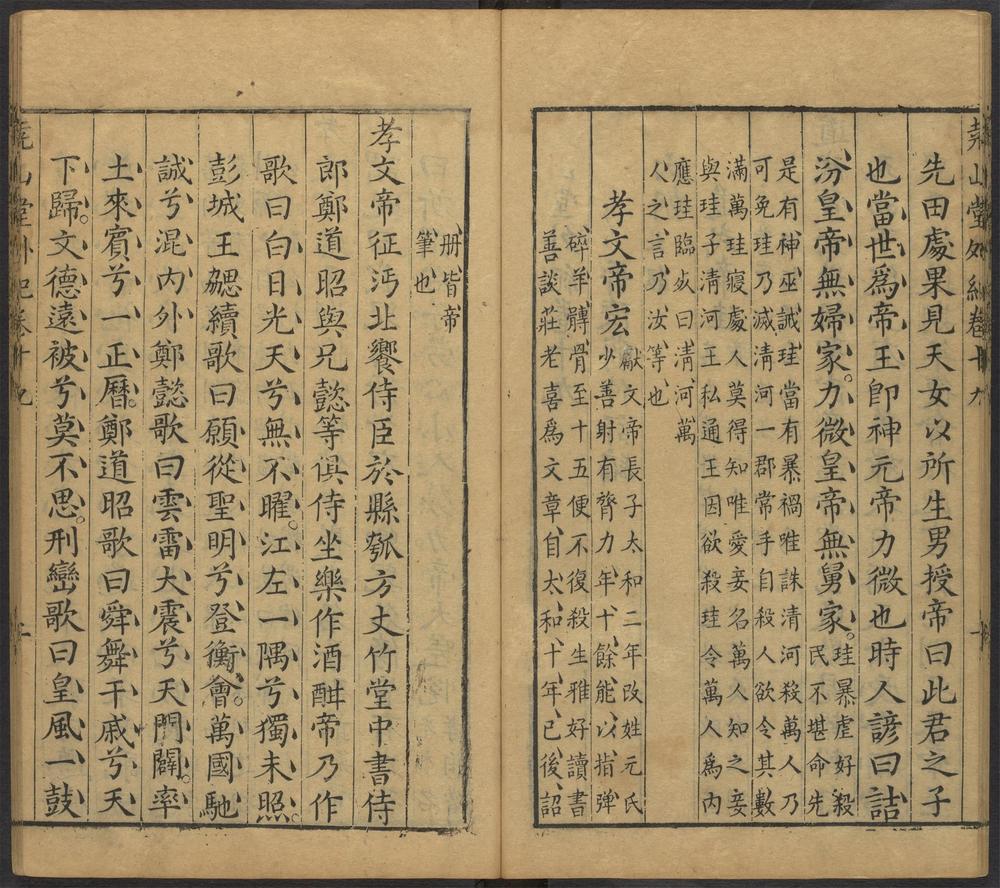 堯山堂外紀卷十九
先田處果見天女以所生男授帝曰此君之子
也當世爲帝王卽神元帝力微也時人諺曰詰
汾皇帝無婦家力微皇帝無舅家。珪暴虐好殺
民不堪命先
是有神巫誡珪當有暴禍唯誅清河殺萬人乃
可免珪乃滅清河一郡常手自殺人欲令其數
滿萬珪寢處人莫得知唯愛妾名萬人知之妾
與珪子清河王私通王因欲殺珪令萬人爲內
應珪臨㱾曰清河萬
人之言乃汝等也
孝文帝宏獻文帝長子太和二年改姓元氏
少善射有膂力年十餘能以指彈
碎羊髆骨至十五便不復殺生雅好讀書
善談莊老喜爲文章自太和十年已後詔
册皆帝
筆也
孝文帝征沔北饗侍臣於縣瓠方丈竹堂中書侍
郎鄭道昭與兄懿等俱侍坐樂作酒酣帝乃作
歌曰白日光天兮無不曜。江左一隅兮獨未照。
彭城王勰續歌曰願從聖明兮登衡會。萬國馳
誠兮混內外鄭懿歌曰雲雷大震兮天門闢。率
土來賓兮一正曆。鄭道昭歌曰舜舞干戚兮天
下歸。文德遠被兮莫不思。刑巒歌曰皇風一鼓
堯山堂外紀卷十九